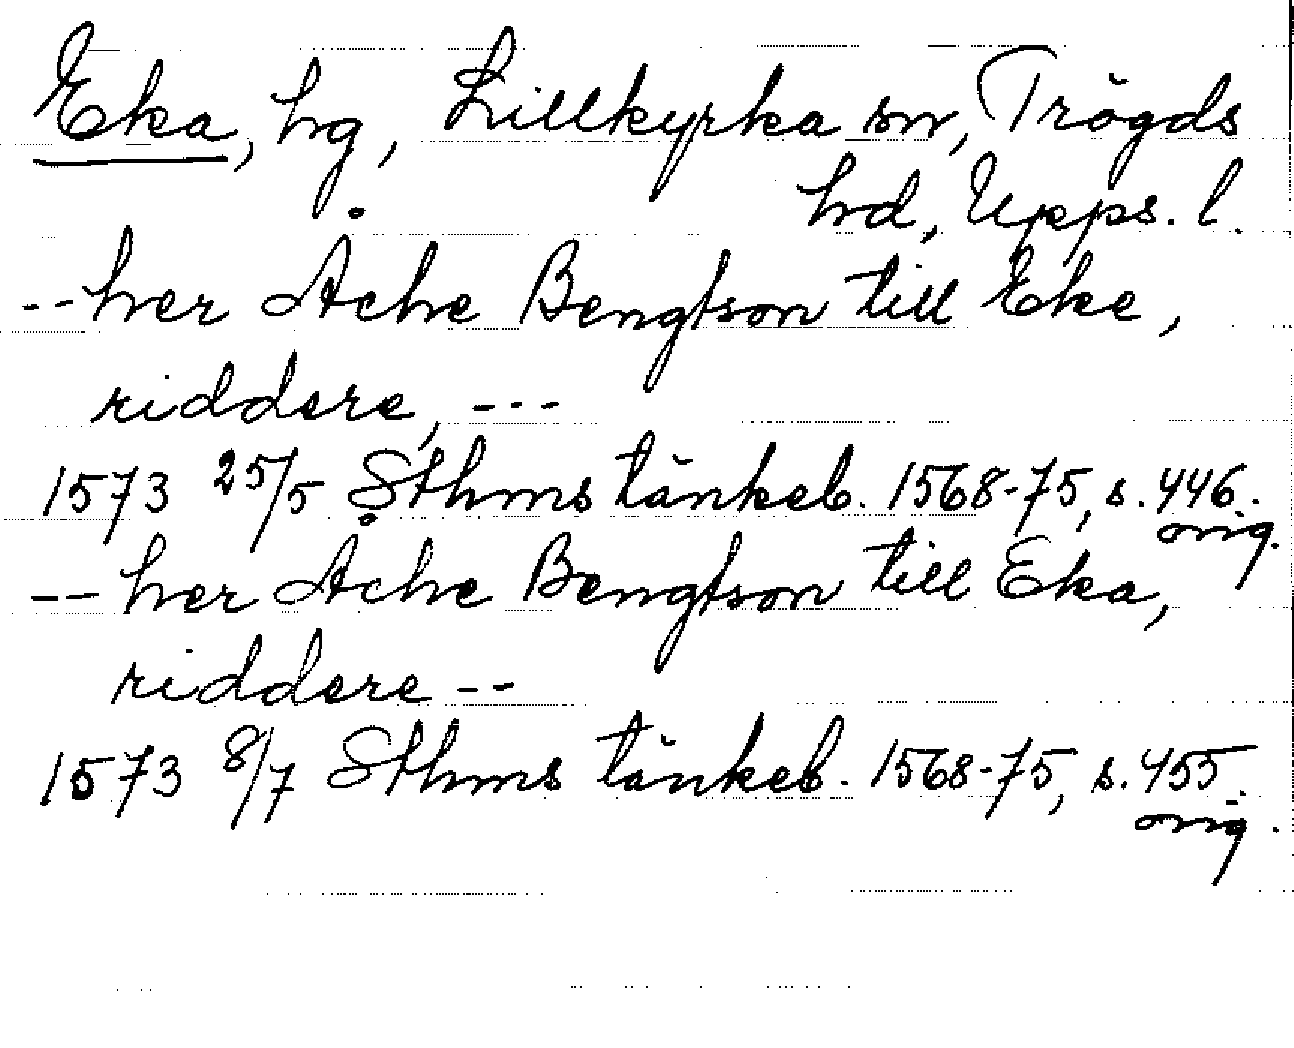 Eka, hg, Lillkyrka sn, Trögds
hd, Upps. l.
-- her Åche Bengtson till Eke,
riddere, ---
1573 25/5 Sthms tänkeb. 1568-75, s. 446.
orig.
-- her Åche Bengtson till Eka,
riddere --
1573 8/7 Sthms tänkeb. 1568-75, s. 455.
orig.